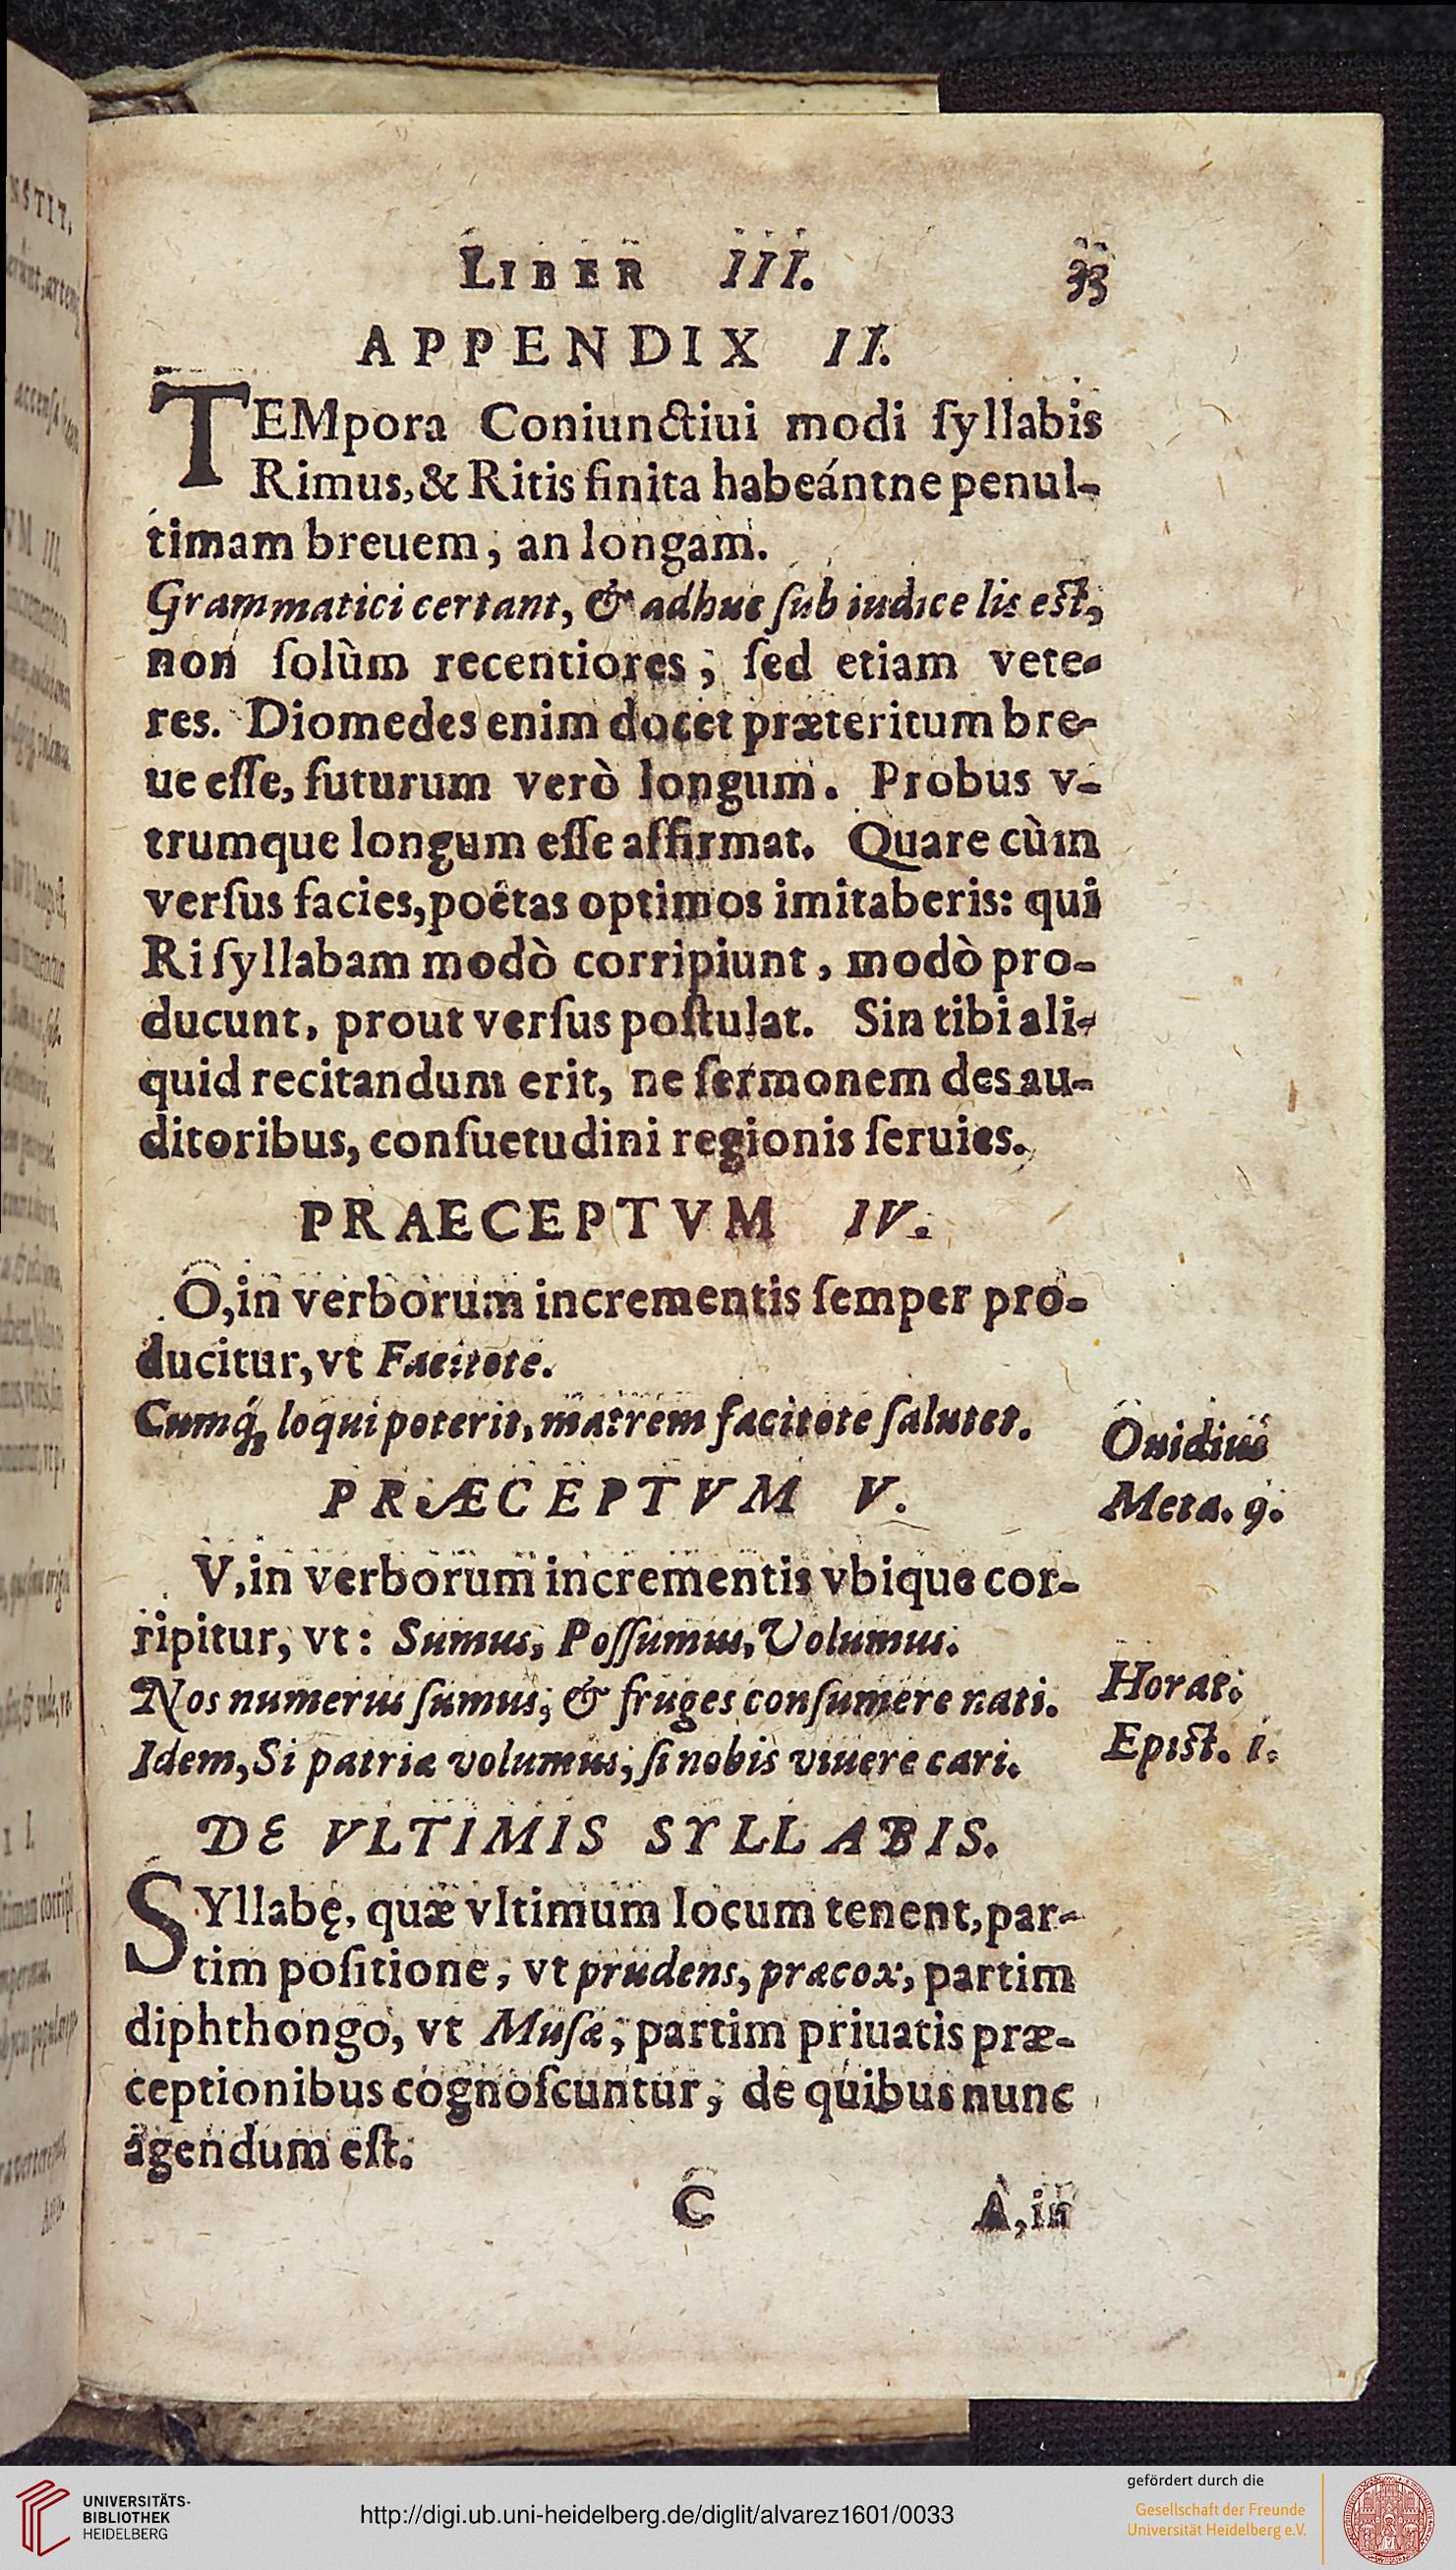 LIBER III. 33
APPENDIX II.
TEMpora Coniunctiui modi ſyllabis
Rimus, & Ritis finita habeántne penul-
timam breuem, an longam.
Grammatici certant, & adhuc ſub iudice lis est,
non ſolùm recentiores, ſed etiam vete-
res. Diomedes enim docet præteritum bre-
ue eſſe, futurum verò longum. Probus v-
trumque longum eſſe affirmat. Quare cùm
verſus facies, poëtas optimos imitaberis: qui
Ri ſyllabam modò corripiunt, modò pro-
ducunt, prout verſus poſtulat. Sin tibi ali-
quid recitandum erit, ne ſermonem des au-
ditoribus, conſuetudini regionis ſeruies.
PRAECEPTVM IV.
O, in verborum incrementis ſemper pro-
ducitur, vt Facitote.
Cumq́; loqui poterit, matrem facitote ſalutet.
Ouidius
Meta. 9.
PRÆCEPTVM V.
V, in verborum incrementis vbique cor-
ripitur, vt: Sumus, Poſſumus, Volumus.
Nos numerus ſumus, & fruges conſumere nati.
Idem, Si patriæ volumus, ſi nobis viuere cari.
Horat.
Epist. 1.
DE VLTIMIS SYLLABIS.
SYllabę, quæ vltimum locum tenent, par-
tim poſitione, vt prudens, præcox, partim
diphthongo, vt Muſæ, partim priuatis præ-
ceptionibus cognoſcuntur, de quibus nunc
agendum eſt.
C A, in
UNIVERSITÄTS-
BIBLIOTHEK
HEIDELBERG
http://digi.ub.uni-heidelberg.de/diglit/alvarez1601/0033
gefördert durch die
Gesellschaft der Freunde
Universität Heidelberg e.V.